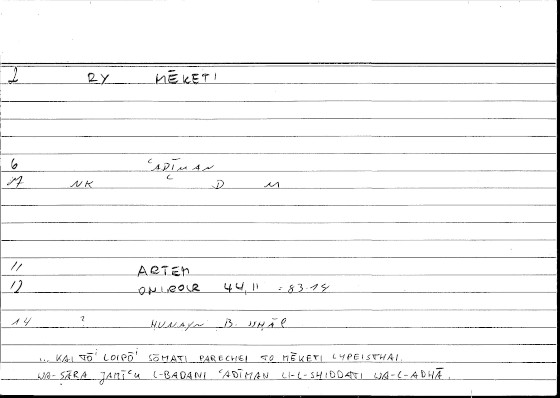 2 RY MĒKETI
6 ʿADĪMAN
7 NK ʿ D M
11 ARTEM
12 ONIROCR 44,11 = 83.14
14 ? HUNAYN B. ISḤĀQ
... KAI TŌⁱ LOIPŌⁱ SŌMATI PARECHEI TO MĒKETI LYPEISTHAI.
WA-ṢĀRA JAMĪʿU L-BADANI ʿADĪMAN LI-L-SHIDDATI WA-L-ADHĀ.